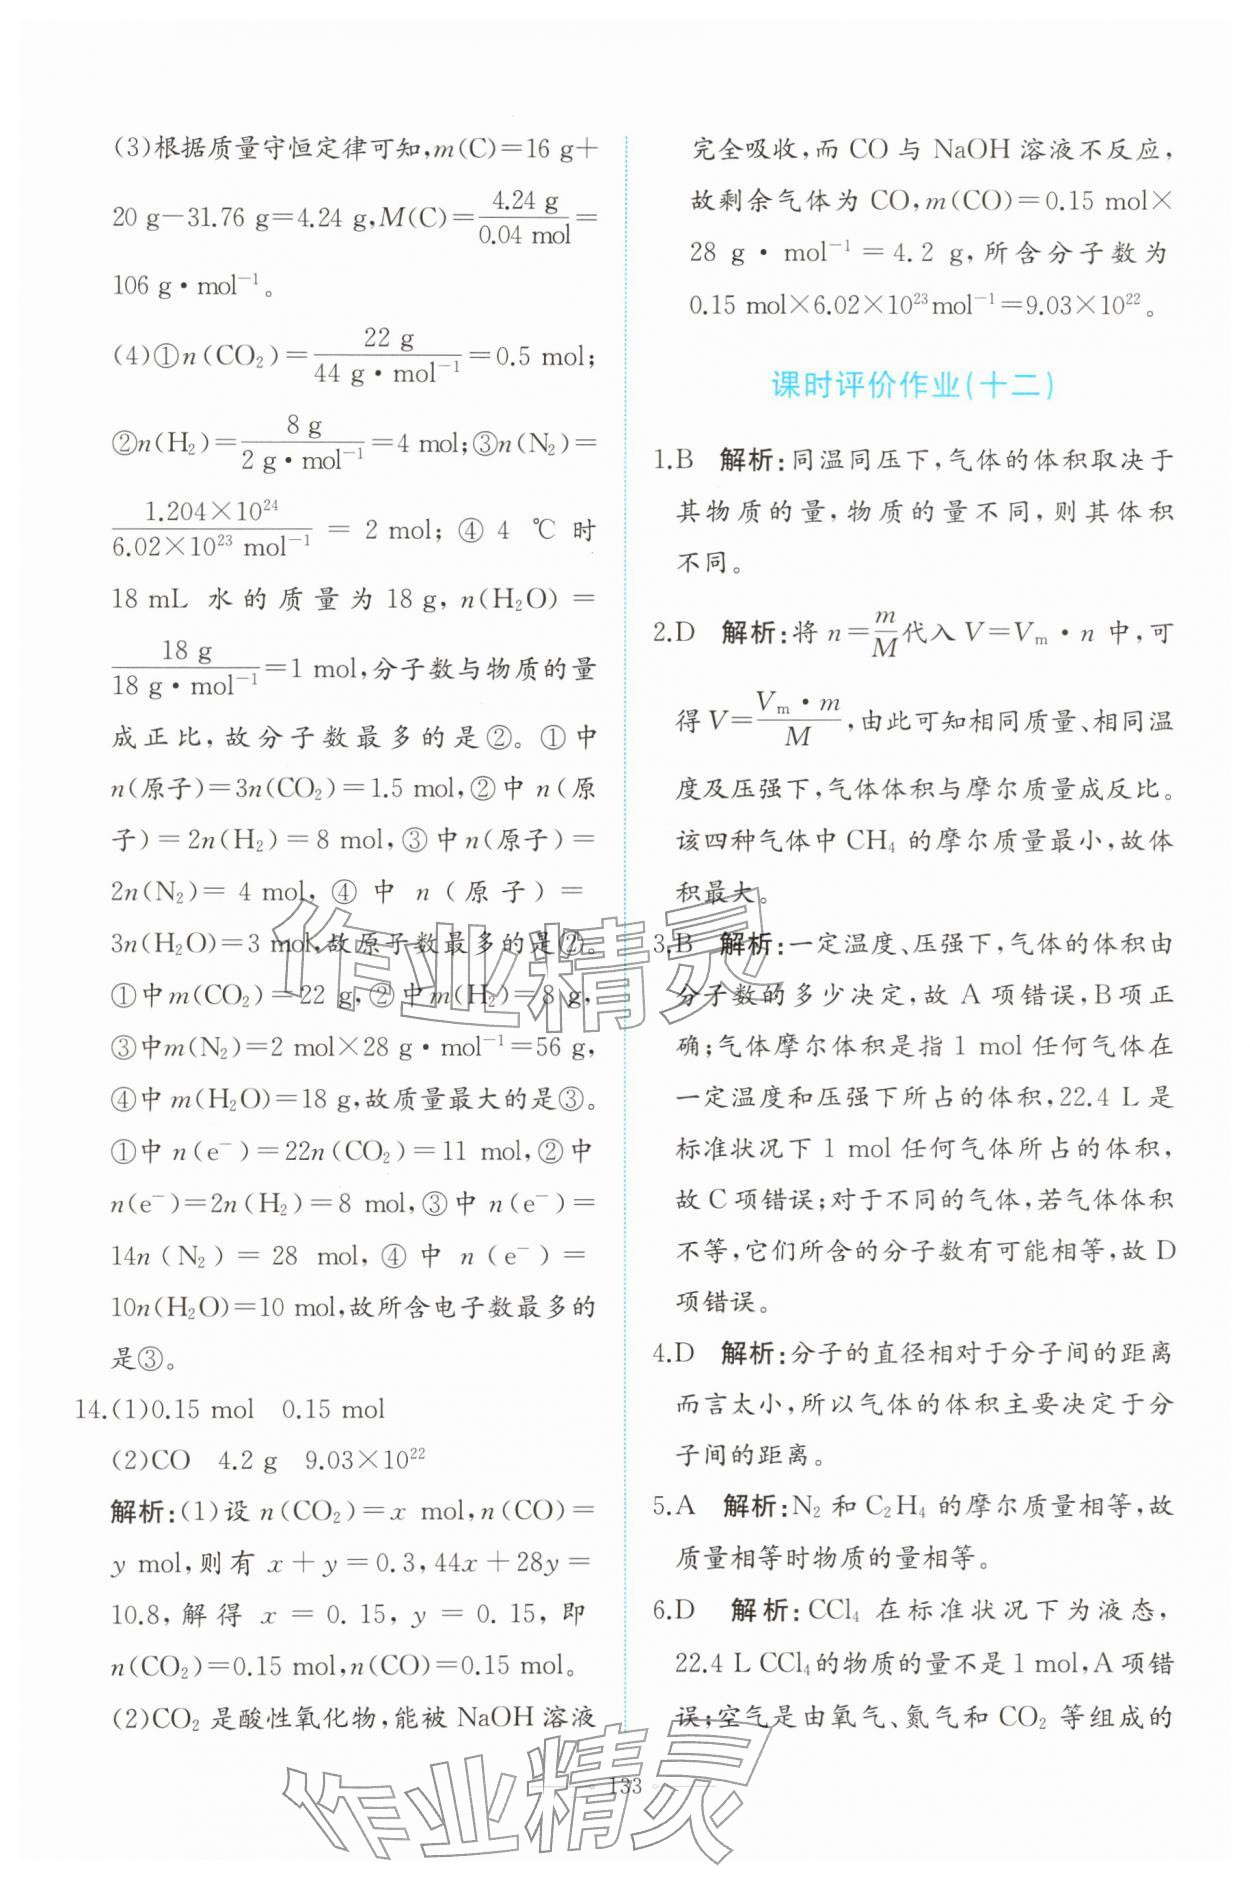 (3)根据质量守恒定律可知,m(C)=16 g+
20 g−31.76 g=4.24 g,M(C)=4.24 g/0.04 mol=
106 g·mol⁻¹。
(4)①n(CO₂)=22 g/44 g·mol⁻¹=0.5 mol;
②n(H₂)=8 g/2 g·mol⁻¹=4 mol;③n(N₂)=
1.204×10²⁴/6.02×10²³ mol⁻¹ = 2 mol;④ 4 ℃时
18 mL 水的质量为18 g,n(H₂O)=
18 g/18 g·mol⁻¹=1 mol,分子数与物质的量
成正比,故分子数最多的是②。①中
n(原子)=3n(CO₂)=1.5 mol,②中 n(原
子)=2n(H₂)=8 mol,③中n(原子)=
2n(N₂)= 4 mol, ④ 中 n(原子)=
3n(H₂O)=3 mol,故原子数最多的是②。
①中m(CO₂)=22 g,②中m(H₂)=8 g,
③中m(N₂)=2 mol×28 g·mol⁻¹=56 g,
④中m(H₂O)=18 g,故质量最大的是③。
①中 n(e⁻)=22n(CO₂)=11 mol,②中
n(e⁻)=2n(H₂)=8 mol,③中 n(e⁻)=
14n(N₂)= 28 mol,④中 n(e⁻)=
10n(H₂O)=10 mol,故所含电子数最多的
是③。
14.(1)0.15 mol 0.15 mol
(2)CO 4.2 g 9.03×10²²
解析:(1)设 n(CO₂)=x mol,n(CO)=
y mol,则有 x+y=0.3,44x+28y=
10.8,解得 x = 0.15,y = 0.15,即
n(CO₂)=0.15 mol,n(CO)=0.15 mol。
(2)CO₂是酸性氧化物,能被 NaOH 溶液
完全吸收,而 CO 与 NaOH 溶液不反应,
故剩余气体为 CO,m(CO)=0.15 mol×
28 g·mol⁻¹=4.2 g,所含分子数为
0.15 mol×6.02×10²³mol⁻¹=9.03×10²²。
课时评价作业(十二)
1.B 解析:同温同压下,气体的体积取决于
其物质的量,物质的量不同,则其体积
不同。
2.D 解析:将 n=m/M代入 V=Vₘ·n 中,可
得 V=Vₘ·m/M,由此可知相同质量、相同温
度及压强下,气体体积与摩尔质量成反比。
该四种气体中 CH₄ 的摩尔质量最小,故体
积最大。
3.B 解析:一定温度、压强下,气体的体积由
分子数的多少决定,故 A 项错误,B 项正
确;气体摩尔体积是指 1 mol 任何气体在
一定温度和压强下所占的体积,22.4 L 是
标准状况下 1 mol 任何气体所占的体积,
故 C 项错误;对于不同的气体,若气体体积
不等,它们所含的分子数有可能相等,故 D
项错误。
4.D 解析:分子的直径相对于分子间的距离
而言太小,所以气体的体积主要决定于分
子间的距离。
5.A 解析:N₂ 和 C₂H₄ 的摩尔质量相等,故
质量相等时物质的量相等。
6.D 解析:CCl₄ 在标准状况下为液态,
22.4 L CCl₄的物质的量不是 1 mol,A 项错
误;空气是由氧气、氮气和 CO₂ 等组成的
133
作业精灵
作业精灵